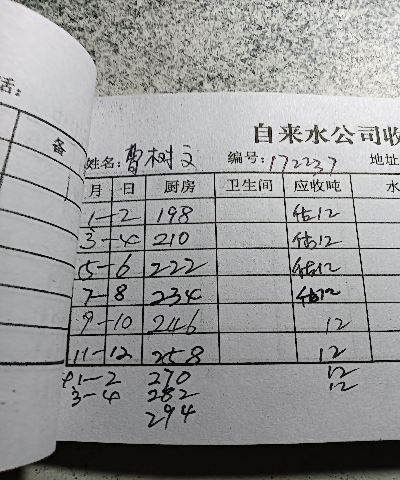 话:
备
自来水公司收
姓名: 曹树文 编号: 172237 地址
月 日 厨房 卫生间 应收吨 水
1-2 198 估12
3-4 210 估12
5-6 222 估12
7-8 234 估12
9-10 246 12
11-12 258 12
1-2 270 12
3-4 282 12
294